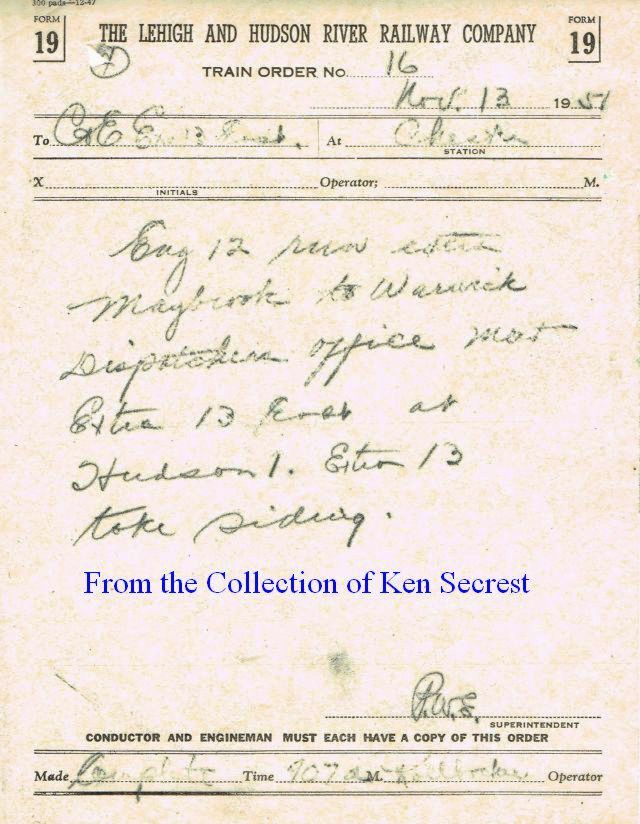 300 pads—12-47
FORM 19 THE LEHIGH AND HUDSON RIVER RAILWAY COMPANY FORM 19
TRAIN ORDER No. 16
Nov. 13 1951
To C&E Ex 13 East. At Chester
STATION
X INITIALS Operator; M.
Eng 12 run extra
Maybrook to Warwick
Dispatchers office meet
Extra 13 East at
Hudson 1. Extra 13
take siding.
From the Collection of Ken Secrest
P.W.E.
SUPERINTENDENT
CONDUCTOR AND ENGINEMAN MUST EACH HAVE A COPY OF THIS ORDER
Made Complete Time 907 a M. Operator